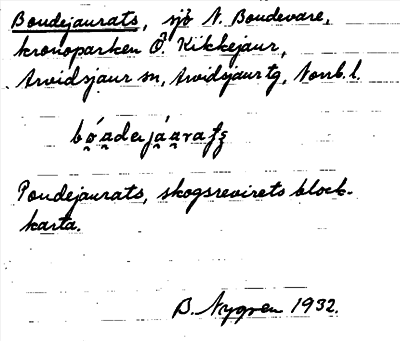 Boudejaurats, sjö N. Boudevare,
kronoparken Ö. Kikkejaur,
Arvidsjaur sn, Arvidsjaur tg, Norrb. l.
Poudejaurats, skogsrevirets block-
karta.
B. Nygren 1932.